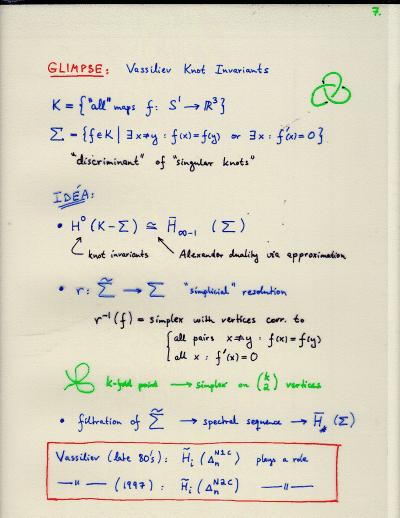 7.
GLIMPSE: Vassiliev Knot Invariants
K = {"all" maps f: S¹ → ℝ³}
Σ = {f∈K | ∃ x≠y : f(x)=f(y) or ∃x : f'(x)=0}
"discriminant" of "singular knots"
IDÉA:
• H⁰(K-Σ) ≅ H̄_{∞-1} (Σ)
knot invariants Alexander duality via approximation
• r: Σ̃ → Σ "simplicial" resolution
r⁻¹(f) = simplex with vertices corr. to
{all pairs x≠y : f(x)=f(y)
all x : f'(x)=0
k-fold point → simplex on (k 2) vertices
• filtration of Σ̃ → spectral sequence → H̄_*(Σ)
Vassiliev (late 80's): H̃_i (Δ_n^{N1C}) plays a role
—"— (1997): H̃_i (Δ_n^{N2C}) —"—